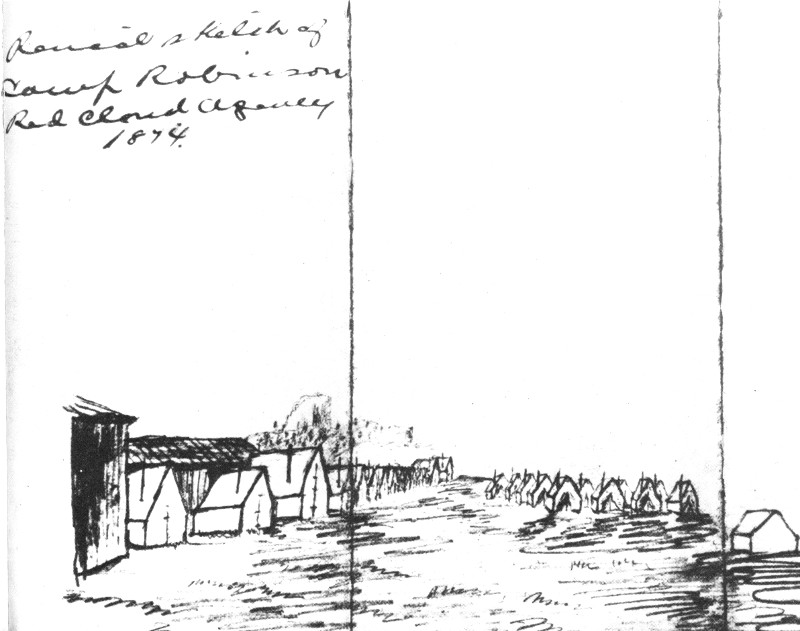 Pencil sketch of
Camp Robinson
Red Cloud Agency
1874.